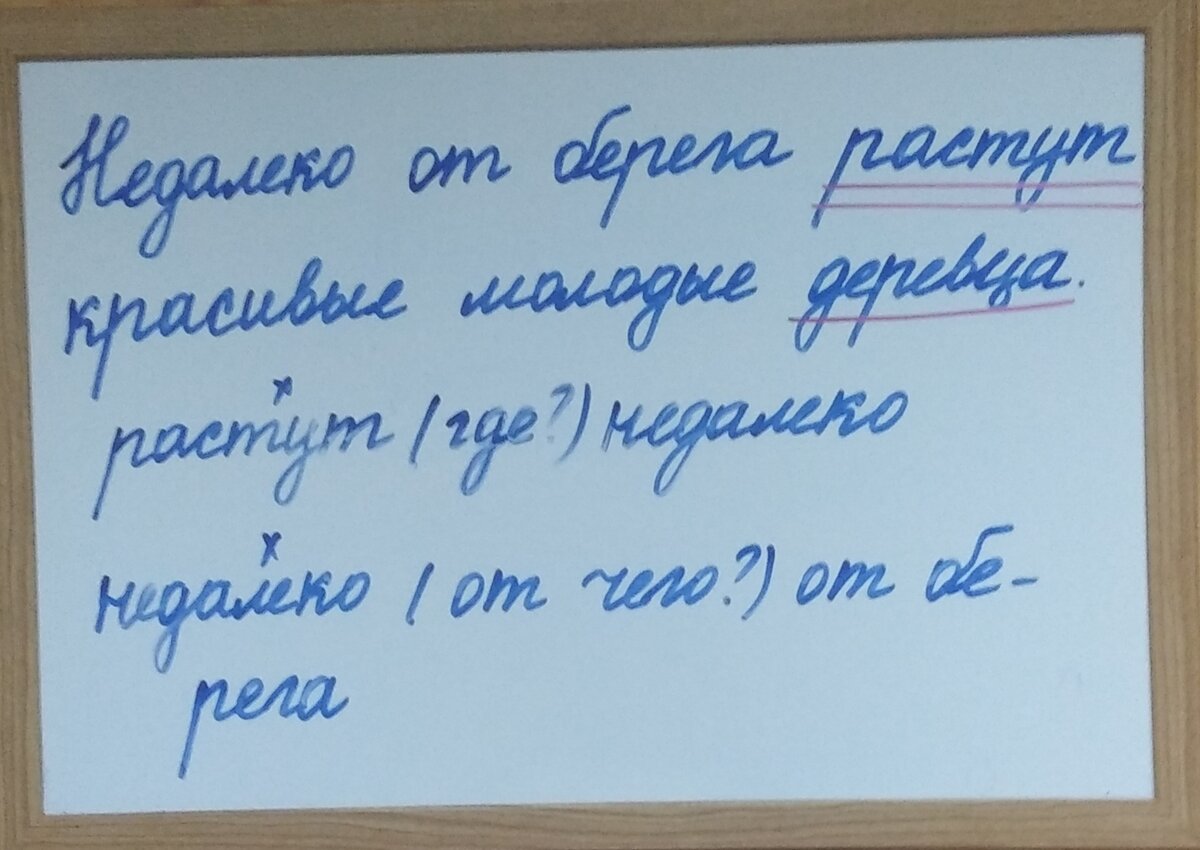 Недалеко от берега растут
красивые молодые деревца.
х
растут (где?) недалеко
х
недалеко (от чего?) от бе-
рега